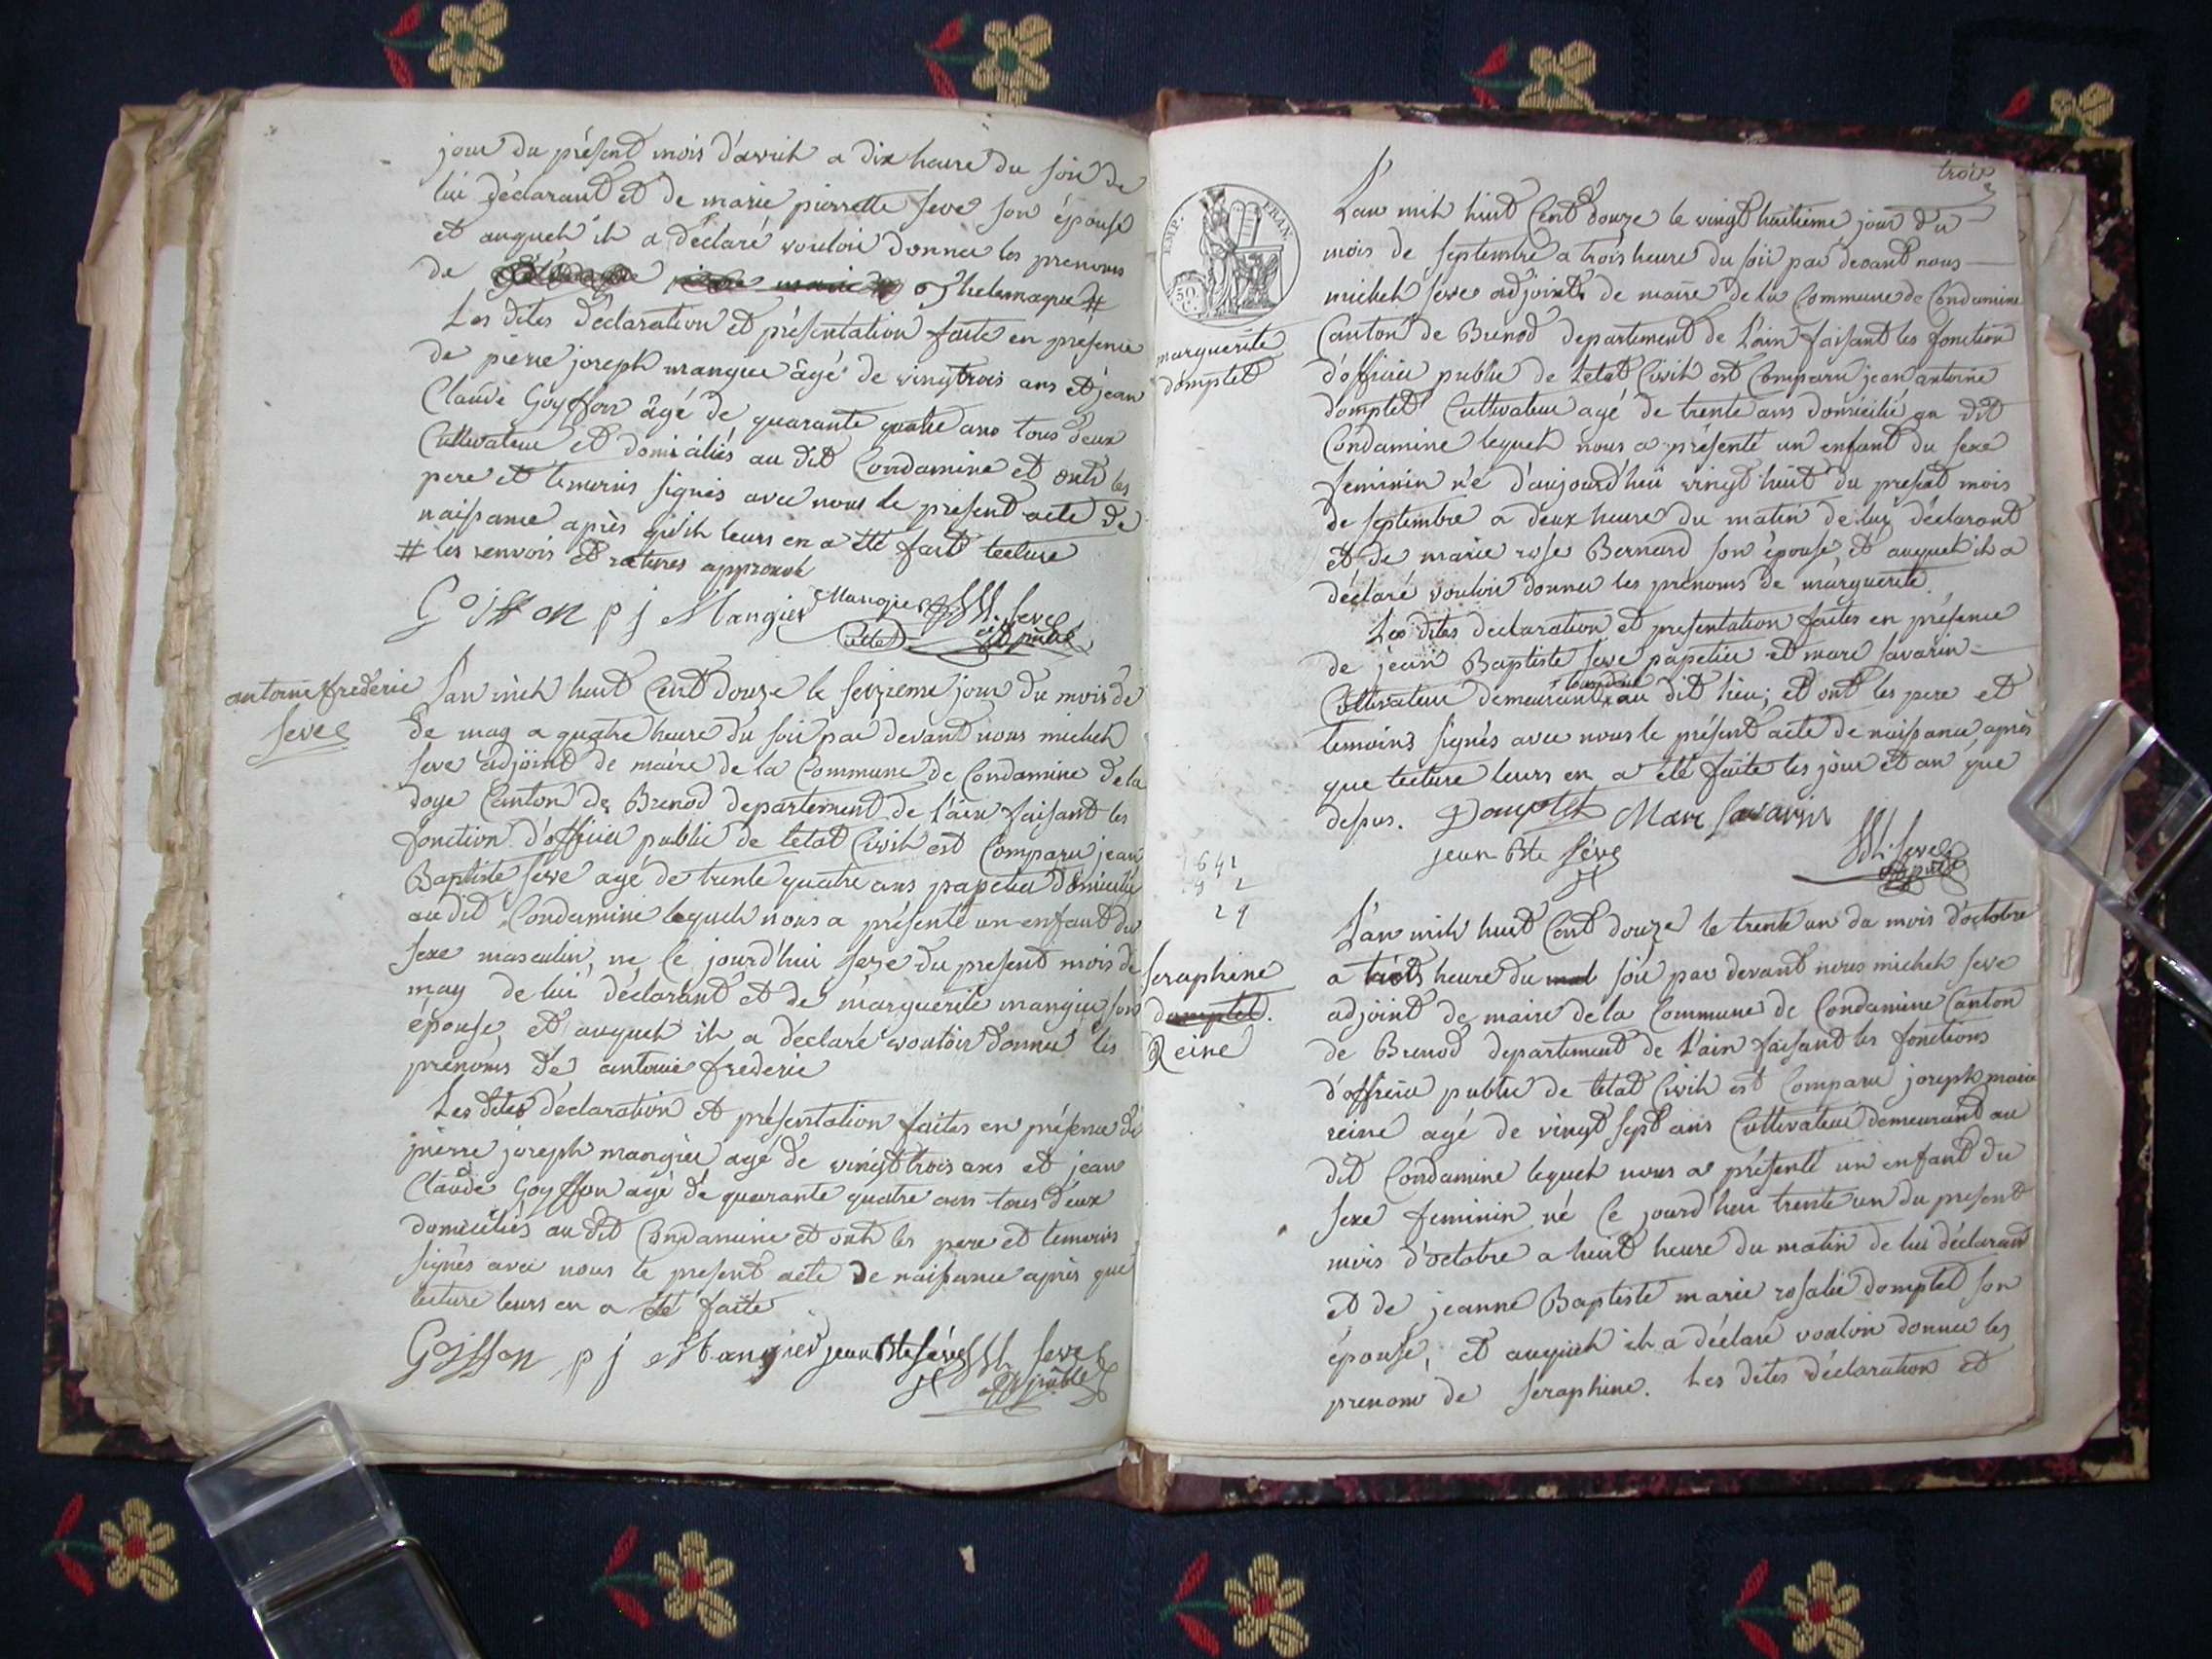 jour du présent mois d'avrih a dix heure du soir de
lui déclarant et de marie pierrette seve son épouse
et auqueh ih a déclaré vouloir donner les prenoms
de thelemaque #
Les dites déclaration et présentation faite en présence
de pierre joseph mangier âgé de vingttrois ans et jean
Claude Goyffon âgé de quarante quatre ans tous deux
Cultivateur et domiciliés au dit Condamine et onts les
pere et temoins signés avec nous le présent acte de
naissance après qu'ih leurs en a été fait lecture
# les renvois et ratures approuvé
Goiffon p j Mangier Mangier M. Seve
antoine frederic
seve
L'an mih huit Cent douze le seizieme jour du mois de
de may a quatre heure du soir par devant nous micheh
seve adjoint de maire de la Commune de Condamine de la
doye Canton de Brenod departement de l'ain faisant les
fonction d'officier public de letat Civih est Comparu jean
Baptiste seve agé de trente quatre ans papetier domicilié
au dit Condamine lequeh nous a présenté un enfant du
sexe masculin, né ce jourd'hui seze du present mois de
may de lui déclarant et de marguerite mangier son
épouse, et auqueh ih a déclaré vouloir donner les
prenoms de antoine frederic
Les dites déclaration et présentation faites en présence de
pierre joseph mangier agé de vingt trois ans et jean
Claude Goyffon agé de quarante quatre ans tous deux
domiciliés au dit Condamine et onts les pere et temoins
signés avec nous le present acte de naissance après que
lecture leurs en a été faite
Goiffon p j Mangier jean Bte Séve M. Seve
adjoint
trois
3
EMP. FRAN.
50
C.
marguerite
domptet
L'an mih huit Cent douze le vingt huitieme jour du
mois de septembre a trois heure du soir par devant nous
micheh seve adjoint de maire de la Commune de Condamine
Canton de Brenod departement de l'ain faisant les fonction
d'officier public de letat Civih est Comparu jean antoine
domptet Cultivateur agé de trente ans domicilié au dit
Condamine lequeh nous a présenté un enfant du sexe
feminin né d'aujourd'hui vingt huit du present mois
de septembre a deux heure du matin de luy déclarant
et de marie rose Bernard son épouse, et auqueh ih a
déclaré vouloir donner les prénoms de marguerite.
Les dites declaration et presentation faites en présence
de jean Baptiste seve papetier et marc savarin
tous deux
Cultivateur demeurant au dit lieu; et ont les pere et
temoins signés avec nous le présent acte de naissance, après
que lecture leurs en a été faite les jour et an que
dessus. Domptet Marc Savarin
jean Bte Séve M. Seve
adjoint
641
29
seraphine
domptet.
Reine
L'an mih huit Cent douze le trente un du mois d'octobre
a trois heure du mat soir par devant nous micheh seve
adjoint de maire de la Commune de Condamine Canton
de Brenod departement de l'ain faisant les fonctions
d'officier public de letat Civih est Comparu joseph marie
reine agé de vingt sept ans Cultivateur demeurant au
dit Condamine lequeh nous a présenté un enfant du
sexe feminin né Ce jourd'hui trente un du present
mois d'octobre a huit heure du matin de lui déclarant
et de jeanne Baptiste marie rosalie domptet son
épouse, et auqueh ih a déclaré vouloir donner les
prenom de seraphine. Les dites déclaration et